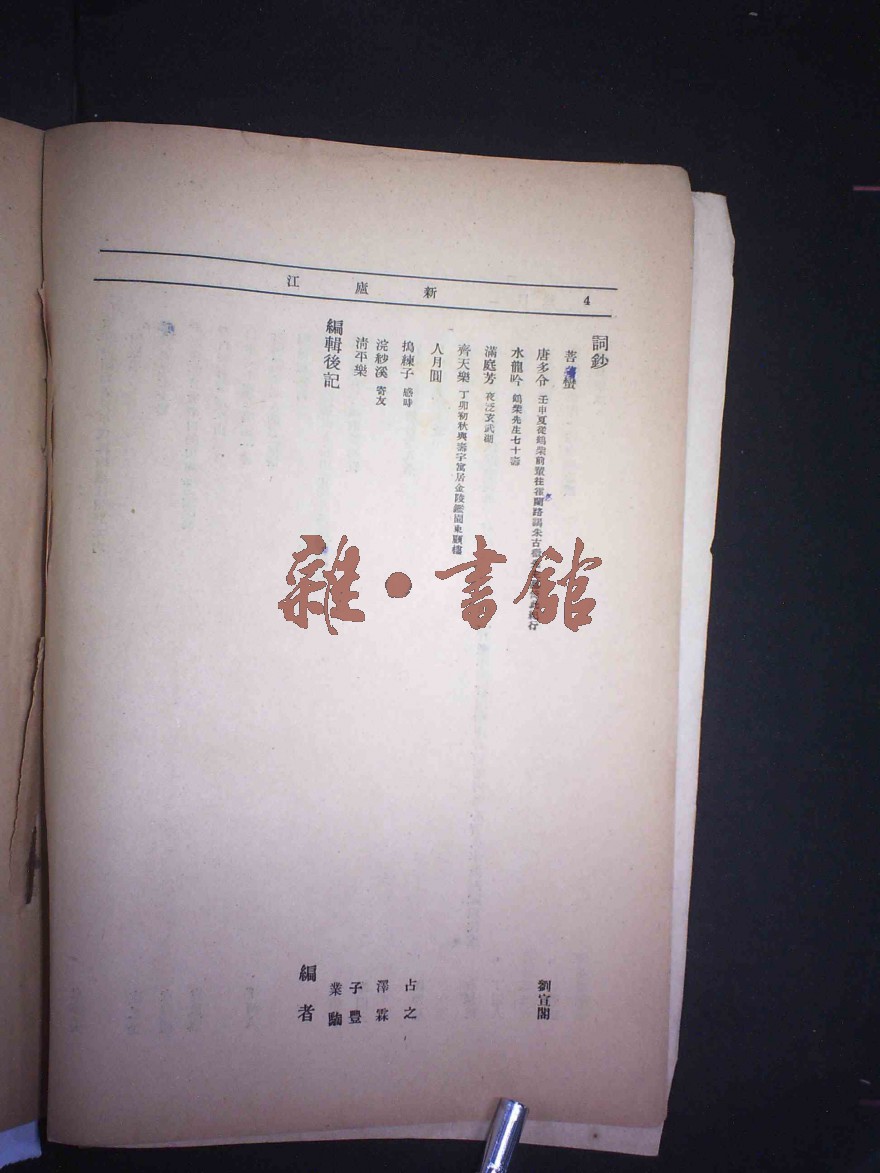 新廬江
4
詞鈔
菩薩蠻
唐多令 壬申夏從鶴柴前輩往霍蘭路謁朱古
水龍吟 鶴柴先生七十壽
滿庭芳 夜泛玄武湖
齊天樂 丁卯初秋與壽宇寓居金陵
人月圓
搗練子 感時
浣紗溪 寄友
清平樂
編輯後記
劉宣閣
占之
澤霖
子豐
業
編者
雜·書館